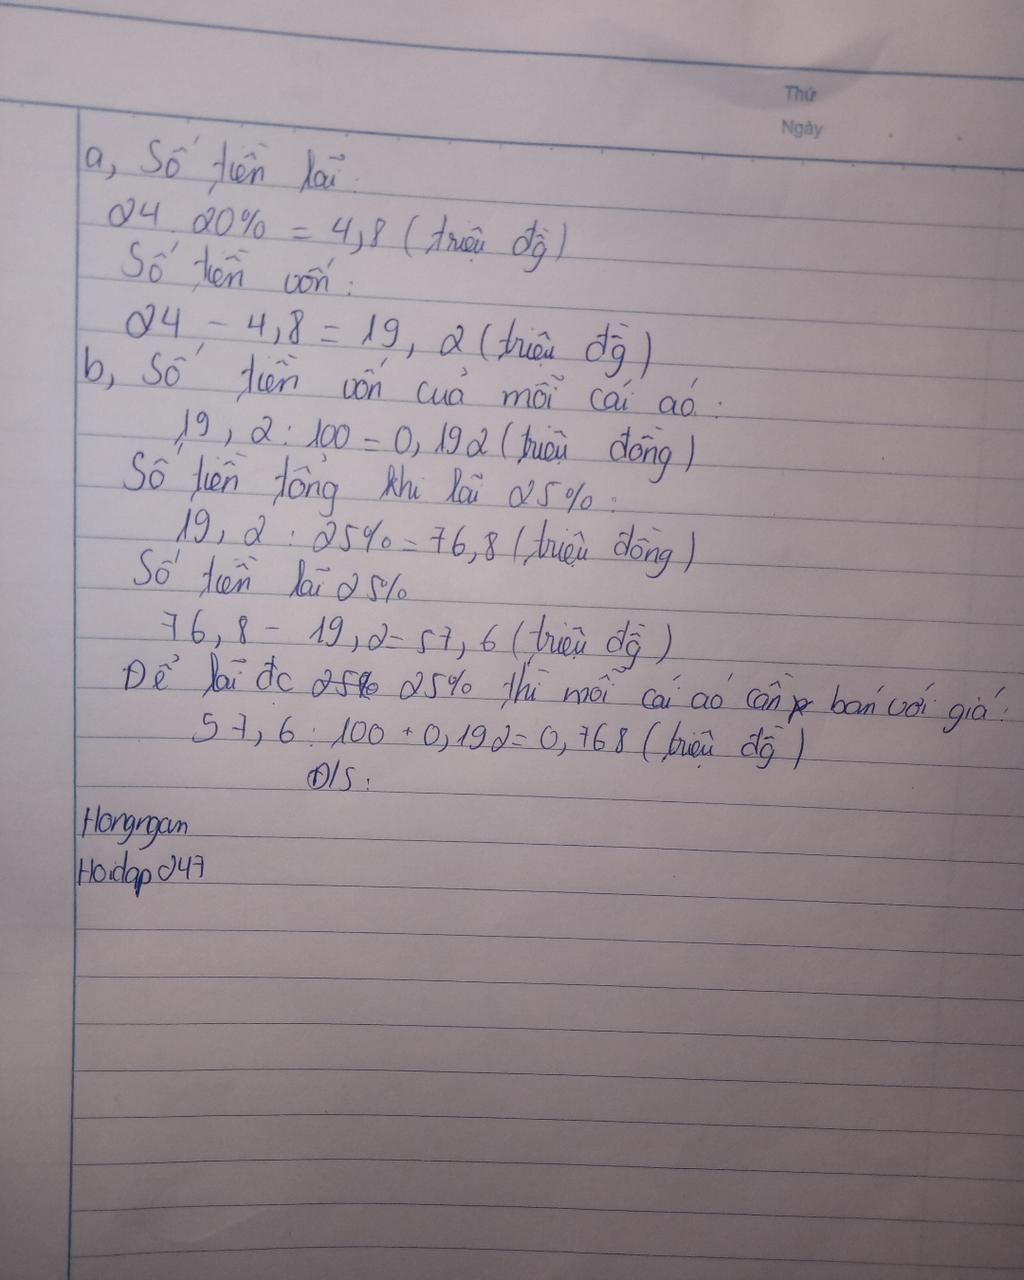 Thứ
Ngày
a, Số tiền lãi:
24. 20% = 4,8 (triệu đg̀)
Số tiền vốn:
24 - 4,8 = 19, 2 (triệu đg̀)
b, Số tiền vốn của mỗi cái áo:
19, 2 : 100 = 0, 192 (triệu đồng)
Số tiền tổng khi lãi 25%:
19, 2 : 25% = 76,8 (triệu đồng)
Số tiền lãi 25%
76, 8 - 19,2 = 57, 6 (triệu đg̀)
Để lãi đc 25% 25% thì mỗi cái áo cần bán với giá:
57, 6 : 100 + 0,192 = 0, 768 (triệu đg̀)
Đ/S:
Hongngan
Hoidap247